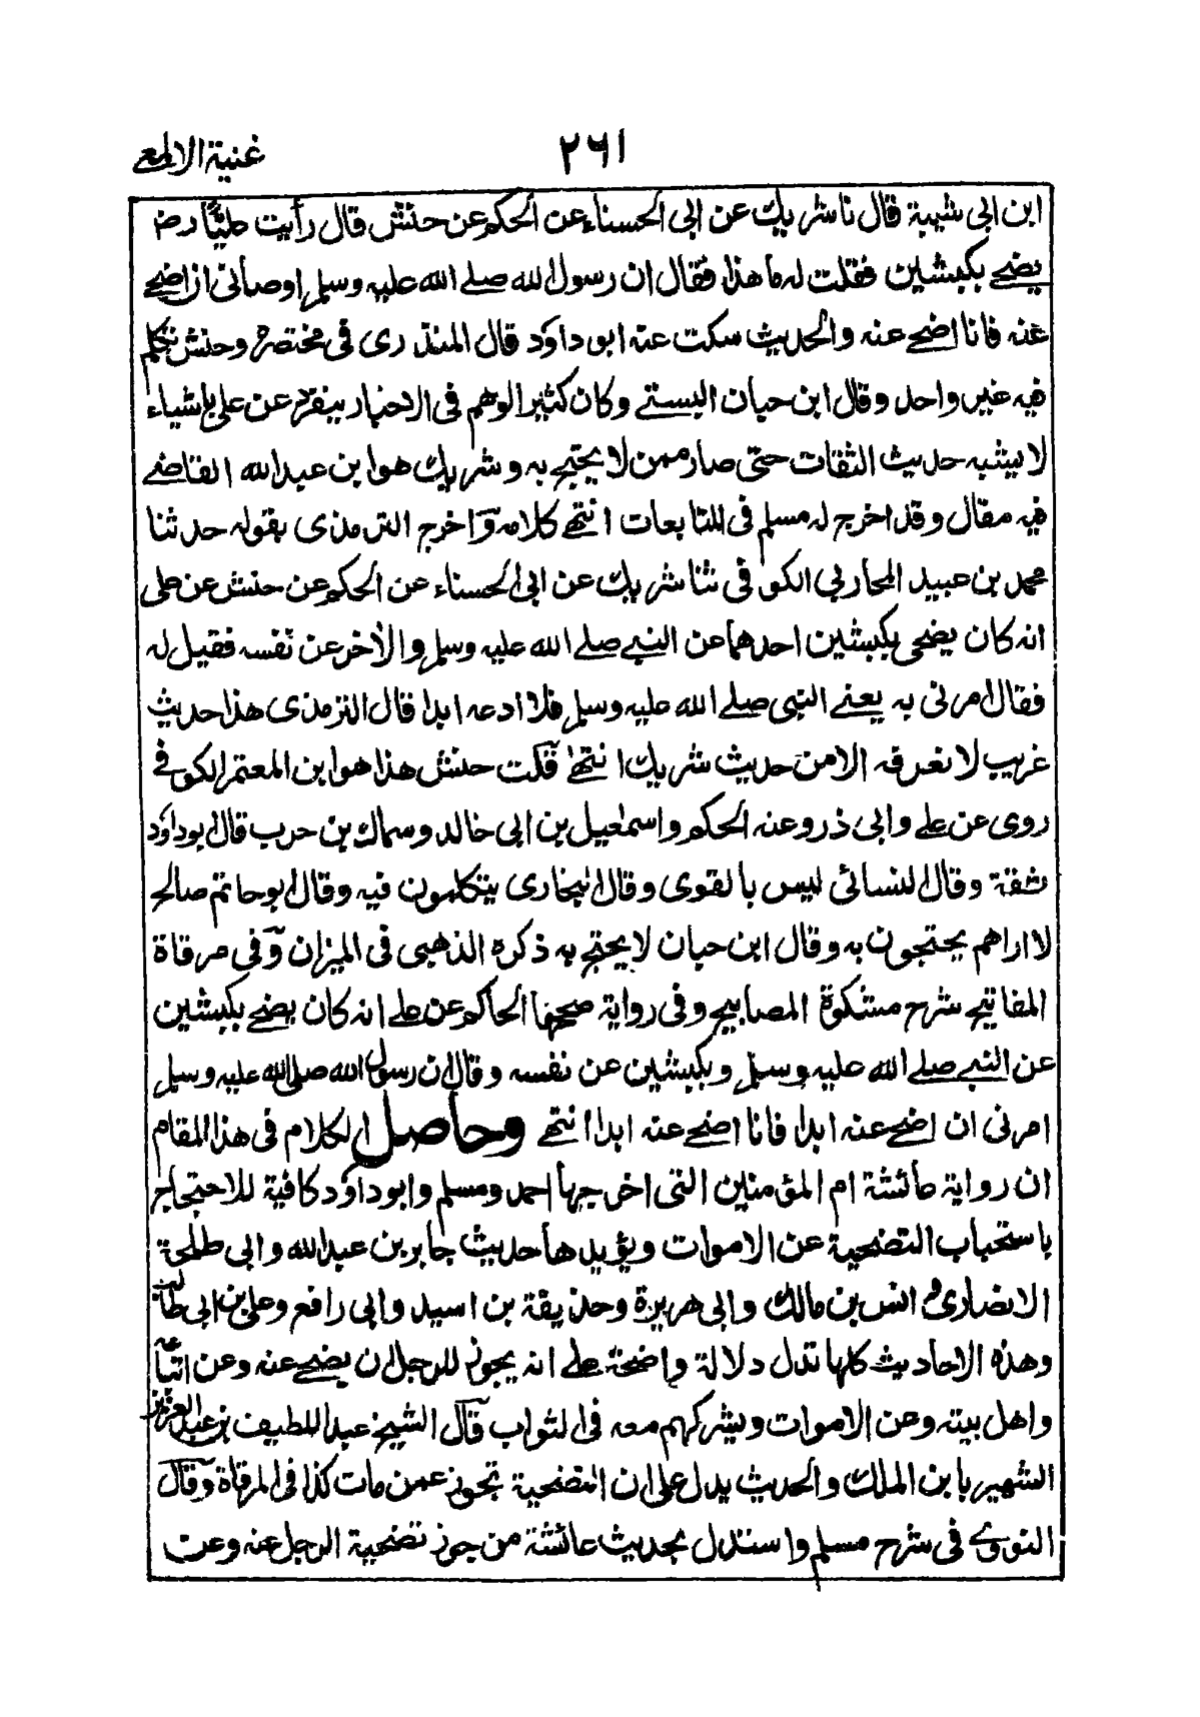 غنية الالمعى
٢٦١
ابن ابى شيبة قال نا شريك عن ابى الحسناء عن الحكم عن حنش قال رأيت عليًّا رض
يضحے بكبشين فقلت له ما هذا فقال ان رسول الله صلے الله عليه وسلم اوصانى ان اضحے
عنه فانا اضحے عنه والحديث سكت عنه ابو داود قال المنذرى فى مختصره وحنش تكلم
فيه غير واحد وقال ابن حبان البستے وكان كثير الوهم فى الاخبار ينفرد عن على باشياء
لا يشبه حديث الثقات حتى صار ممن لا يحتج به وشريك هو ابن عبد الله القاضے
فيه مقال وقد اخرج له مسلم فى المتابعات انتهے كلامه واخرج الترمذى بقوله حدثنا
محمد بن عبيد المحاربى الكوفى ثنا شريك عن ابى الحسناء عن الحكم عن حنش عن على
انه كان يضحى بكبشين احدهما عن النبے صلے الله عليه وسلم والآخر عن نفسه فقيل له
فقال امرنى به يعنے النبى صلے الله عليه وسلم فلا ادعه ابدا قال الترمذى هذا حديث
غريب لا نعرفه الا من حديث شريك انتهے قلت حنش هذا هو ابن المعتمر الكوفے
روى عن على وابى ذر وعنه الحكم واسمعيل بن ابى خالد وسماك بن حرب قال ابو داود
ثقة وقال النسائى ليس بالقوى وقال البخارى يتكلمون فيه وقال ابو حاتم صالح
لا اراهم يحتجون به وقال ابن حبان لا يحتج به ذكره الذهبى فى الميزان وفى مرقاة
المفاتيح شرح مشكوة المصابيح وفى رواية صححها الحاكم عن علے انه كان يضحے بكبشين
عن النبے صلے الله عليه وسلم وبكبشين عن نفسه وقال ان رسول الله صلى الله عليه وسلم
امرنى ان اضحے عنه ابدا فانا اضحے عنه ابدا انتهے وحاصل الكلام فى هذا المقام
ان رواية عائشة ام المؤمنين التى اخرجها احمد ومسلم وابو داود كافية للاحتجاج
باستحباب التضحية عن الاموات ويؤيدها حديث جابر بن عبد الله وابى طلحة
الانصارى وانس بن مالك وابى هريرة وحذيفة بن اسيد وابى رافع وعلى بن ابى طالب
وهذه الاحاديث كلها تدل دلالة واضحة علے انه يجوز للرجل ان يضحے عنه وعن اتباعه
واهل بيته وعن الاموات ويشركهم معه فى الثواب قال الشيخ عبد اللطيف بن عبد العزيز
الشهير بابن الملك والحديث يدل على ان التضحية تجوز عمن مات كذا فى المرقاة وقال
النووے فى شرح مسلم واستدل بحديث عائشة من جوز تضحية الرجل عنه وعن